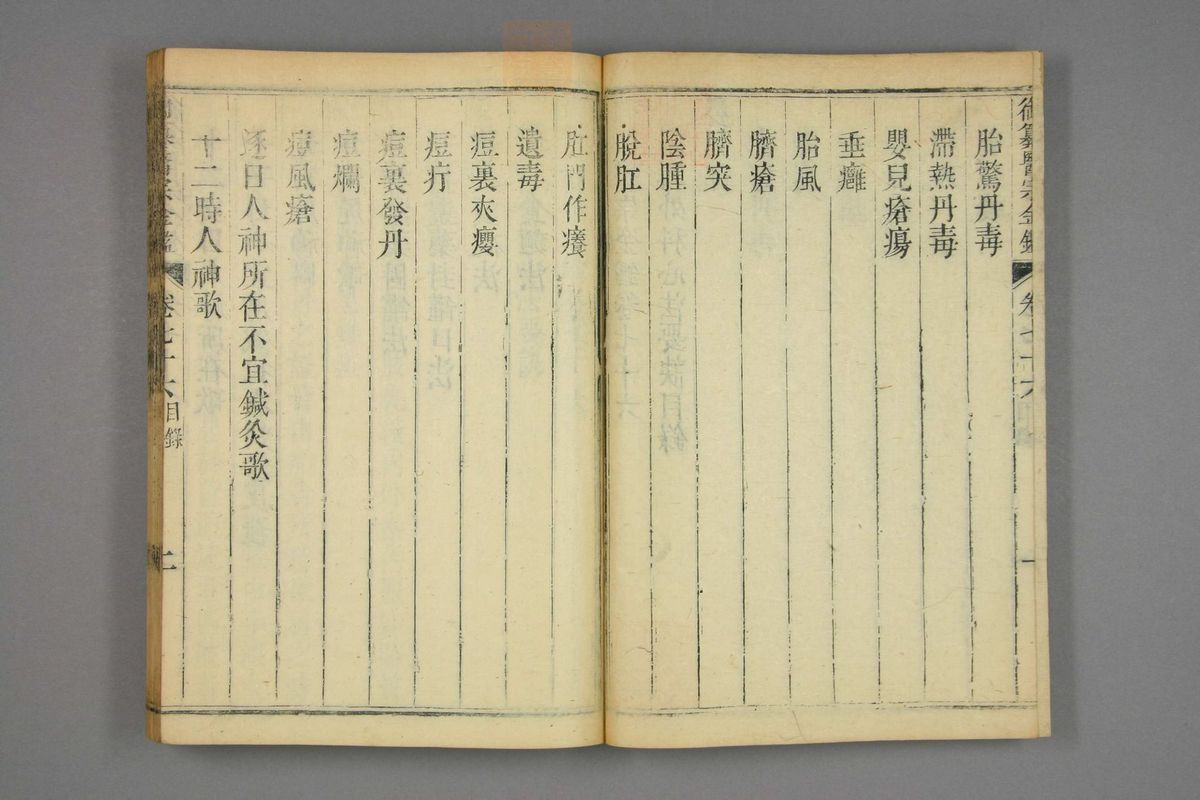 御纂醫宗金鑑 卷七十六 一
胎驚丹毒
滯熱丹毒
嬰兒瘡瘍
垂癰
胎風
臍瘡
臍突
陰腫
脫肛
肛門作癢
遺毒
痘裏夾癭
痘疔
痘裏發丹
痘爛
痘風瘡
逐日人神所在不宜鍼灸歌
十二時人神歌
御纂醫宗金鑑 卷七十六 目錄 二